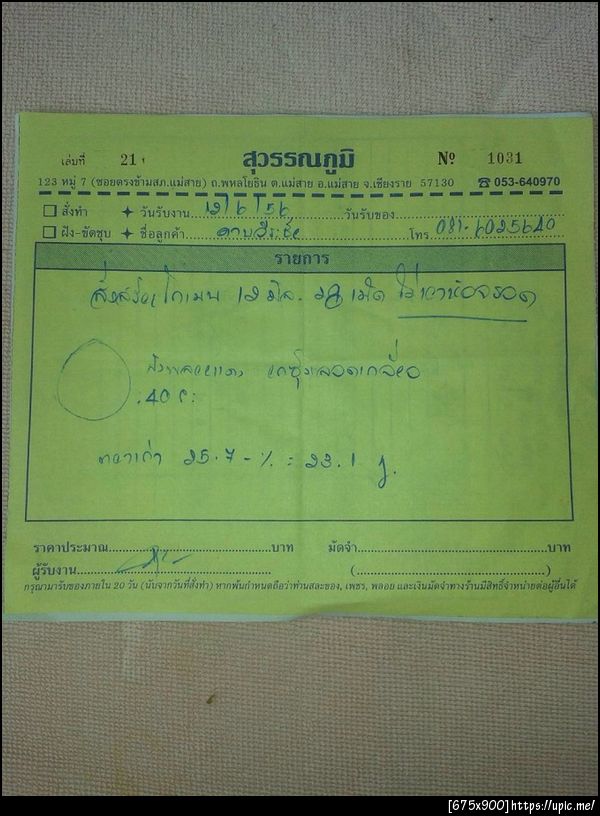 เล่มที่ 21 สุวรรณภูมิ Nº 1031
123 หมู่ 7 (ซอยตรงข้ามสภ.แม่สาย) ถ.พหลโยธิน ต.แม่สาย อ.แม่สาย จ.เชียงราย 57130 ☎ 053-640970
สั่งทำ วันรับงาน 12/6/56 วันรับของ
ฝัง-ขัดชุบ ชื่อลูกค้า โทร. 081-6025640
รายการ
สั่งสร้อย 12 มิล. เม็ด ไม่เอาห้อจรอด
.40 c.
25.7 - % = 23.1 g.
ราคาประมาณ บาท มัดจำ บาท
ผู้รับงาน ( )
กรุณามารับของภายใน 20 วัน (นับจากวันที่สั่งทำ) หากพ้นกำหนดถือว่าท่านสละของ, เพชร, พลอย และเงินมัดจำทางร้านมีสิทธิ์จำหน่ายต่อผู้อื่นได้
[675x900]https://upic.me/